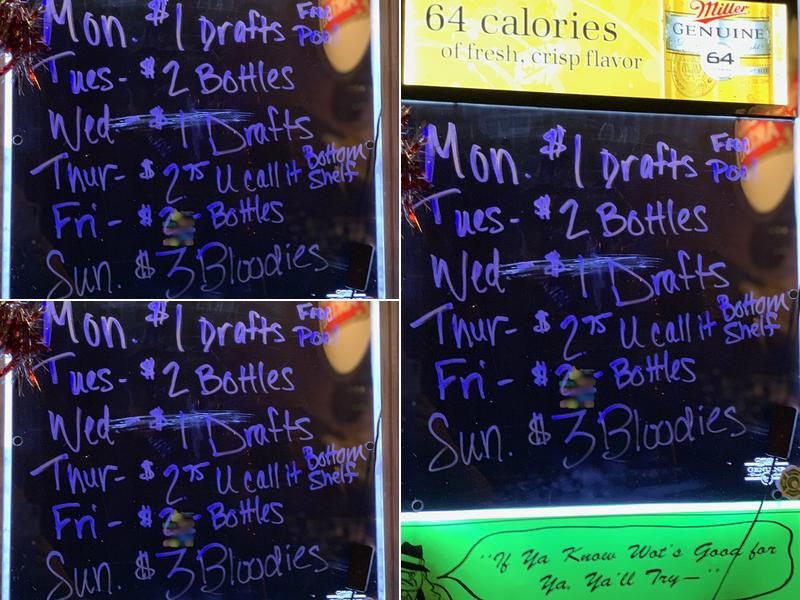 Mon. $1 Drafts Free Pool
Tues- $2 Bottles
Wed $1 Drafts
Thur- $2.75 U call it Bottom Shelf
Fri- $2 - Bottles
Sun. $3 Bloodies
Mon. $1 Drafts Free Pool
Tues- $2 Bottles
Wed $1 Drafts
Thur- $2.75 U call it Bottom Shelf
Fri- $2 - Bottles
Sun. $3 Bloodies
64 calories
of fresh, crisp flavor
Miller
GENUINE
64
Mon. $1 Drafts Free Pool
Tues- $2 Bottles
Wed. $1 Drafts
Thur- $2.75 U call it Bottom Shelf
Fri- $2 - Bottles
Sun. $3 Bloodies
GENUINE
"If Ya Know Wot's Good for
Ya, Ya'll Try—"